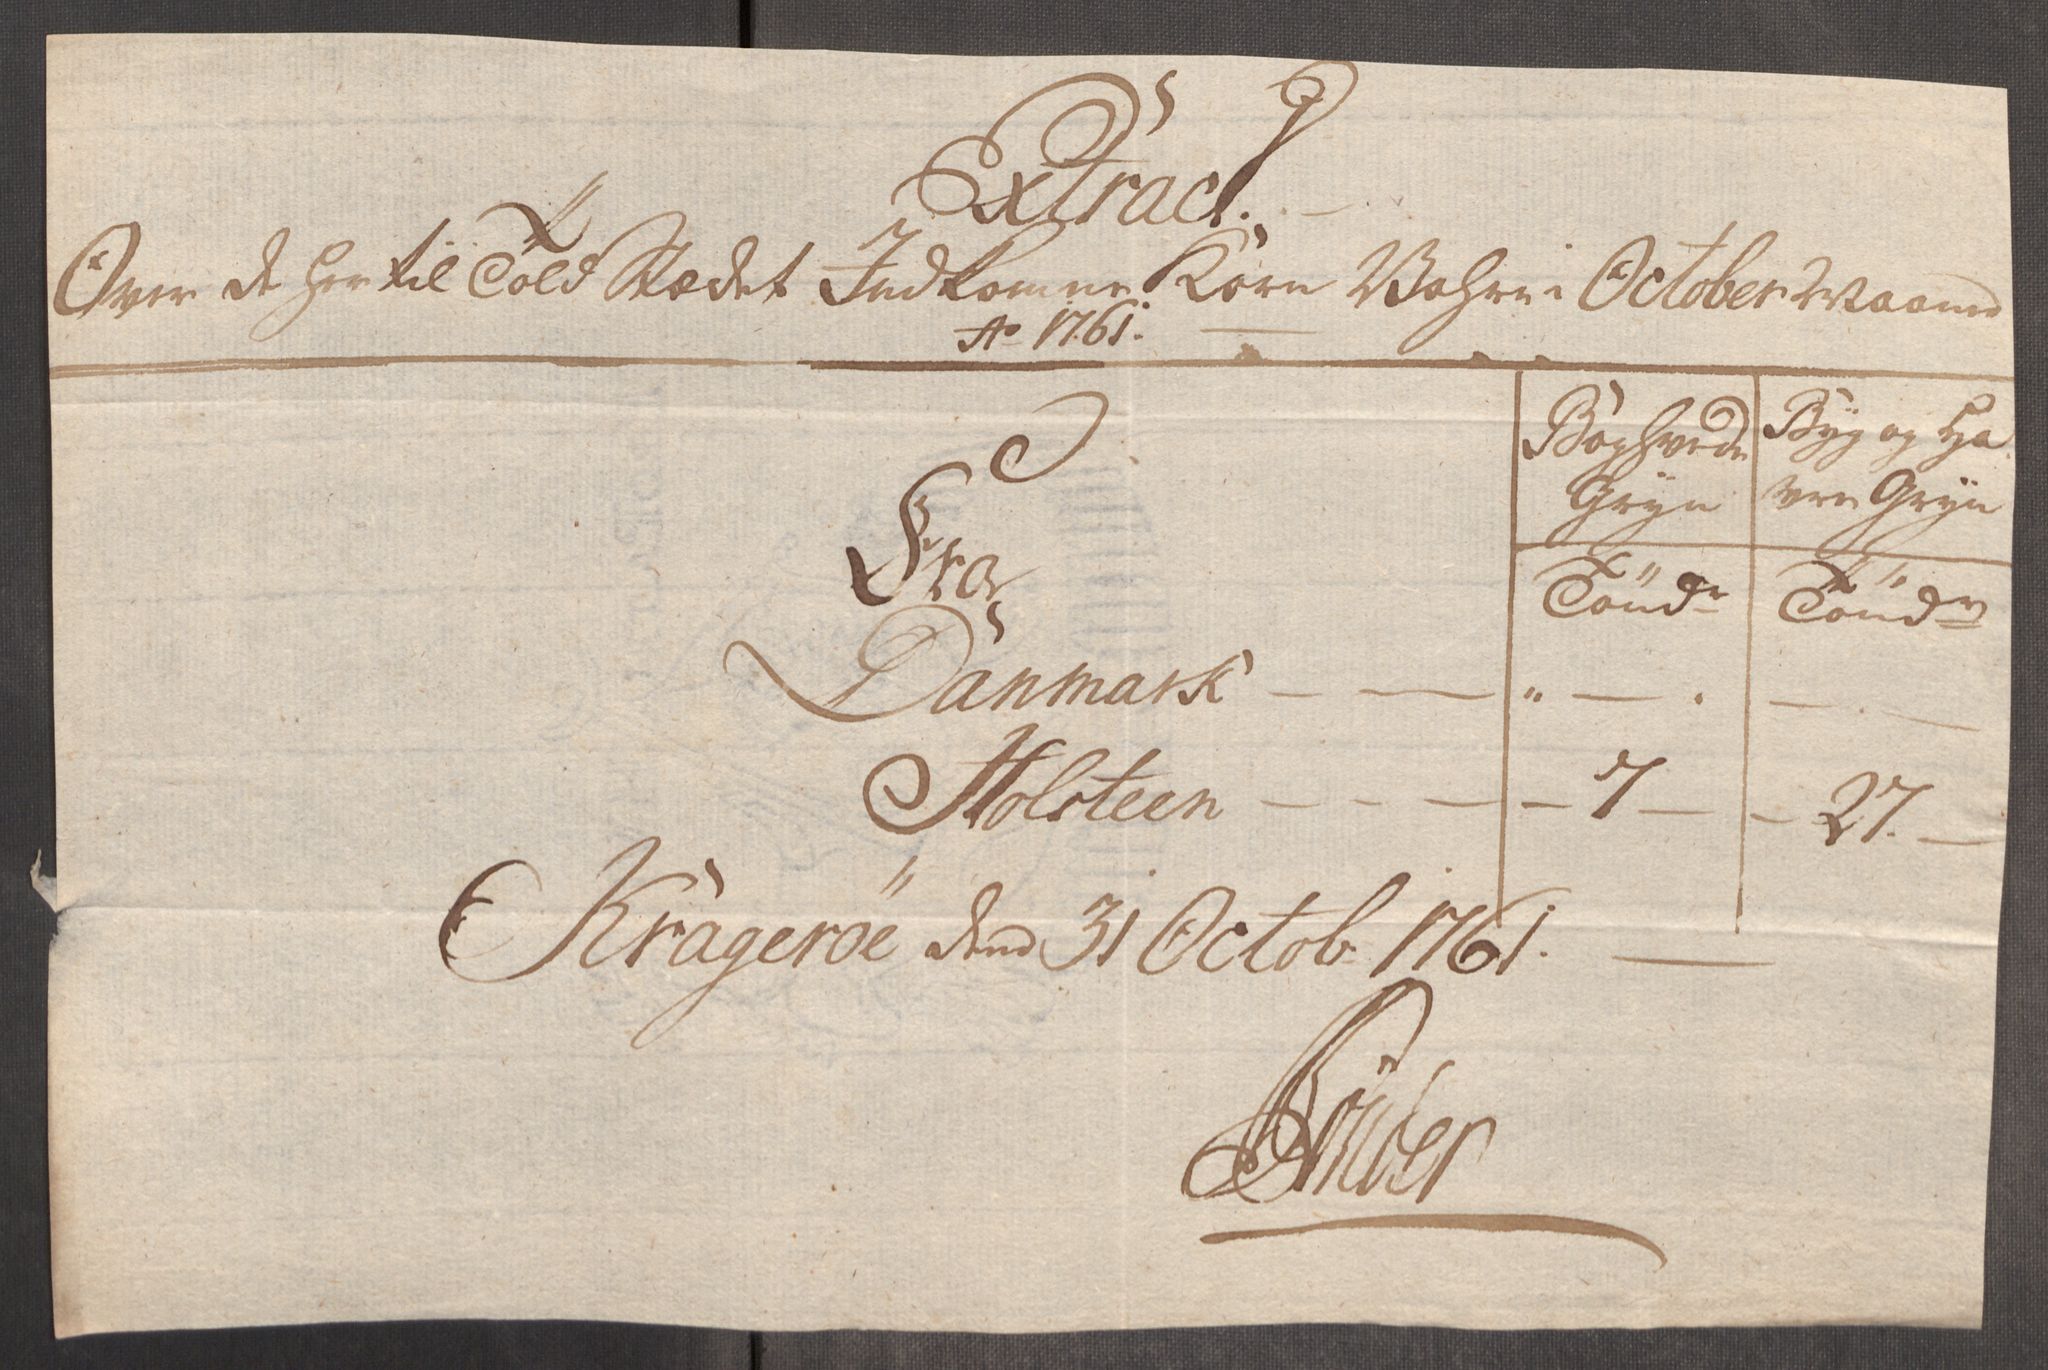 Extract.
Over de her til Told Stædet Indkomne Korn Vahre i October Maaned
Ao 1761.
Boghvede Gryn
Byg og Havre Gryn
Fra
Tönd:
Tönd:
Danmark
Holsteen 7 27.
Krageröe dend 31 Octob: 1761.